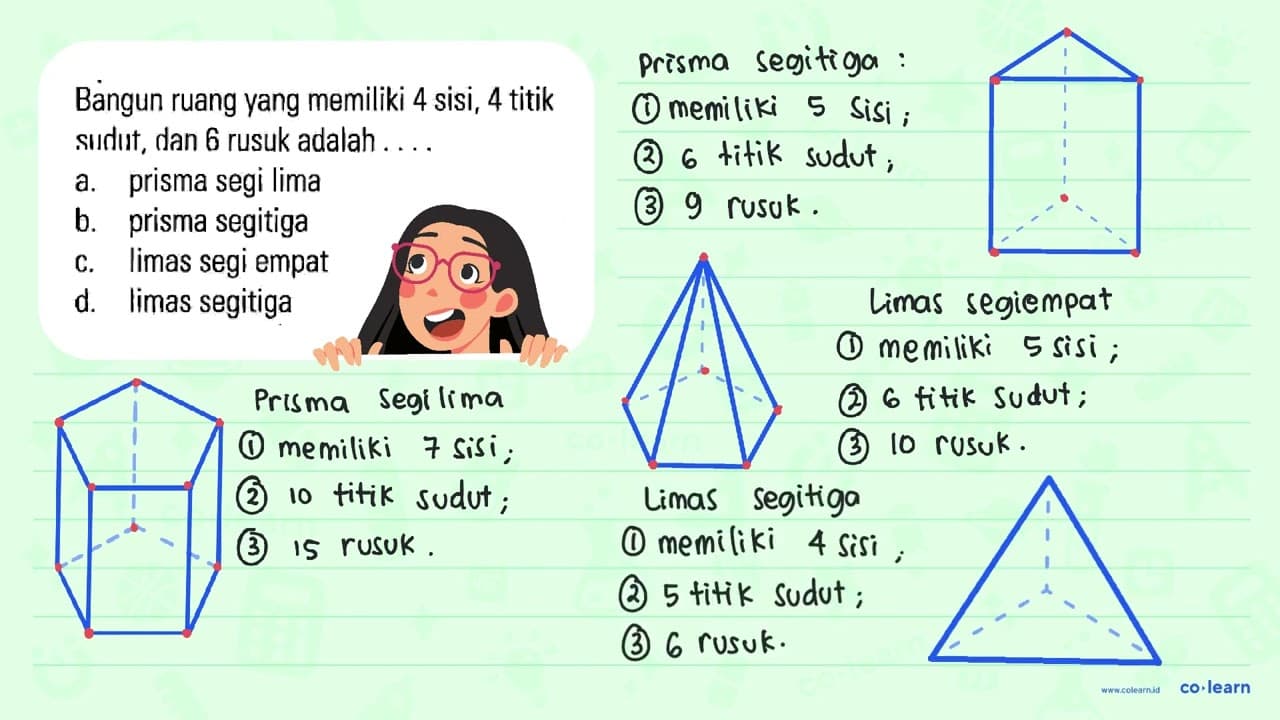 Bangun ruang yang memiliki 4 sisi, 4 titik
sudut, dan 6 rusuk adalah . . . .
a. prisma segi lima
b. prisma segitiga
c. limas segi empat
d. limas segitiga
Prisma segitiga :
① memiliki 5 sisi ;
② 6 titik sudut ;
③ 9 rusuk .
Limas segiempat
① memiliki 5 sisi ;
② 6 titik sudut ;
③ 10 rusuk .
Prisma segi lima
① memiliki 7 sisi ;
② 10 titik sudut ;
③ 15 rusuk .
Limas segitiga
① memiliki 4 sisi ;
② 5 titik sudut ;
③ 6 rusuk .
www.colearn.id co·learn